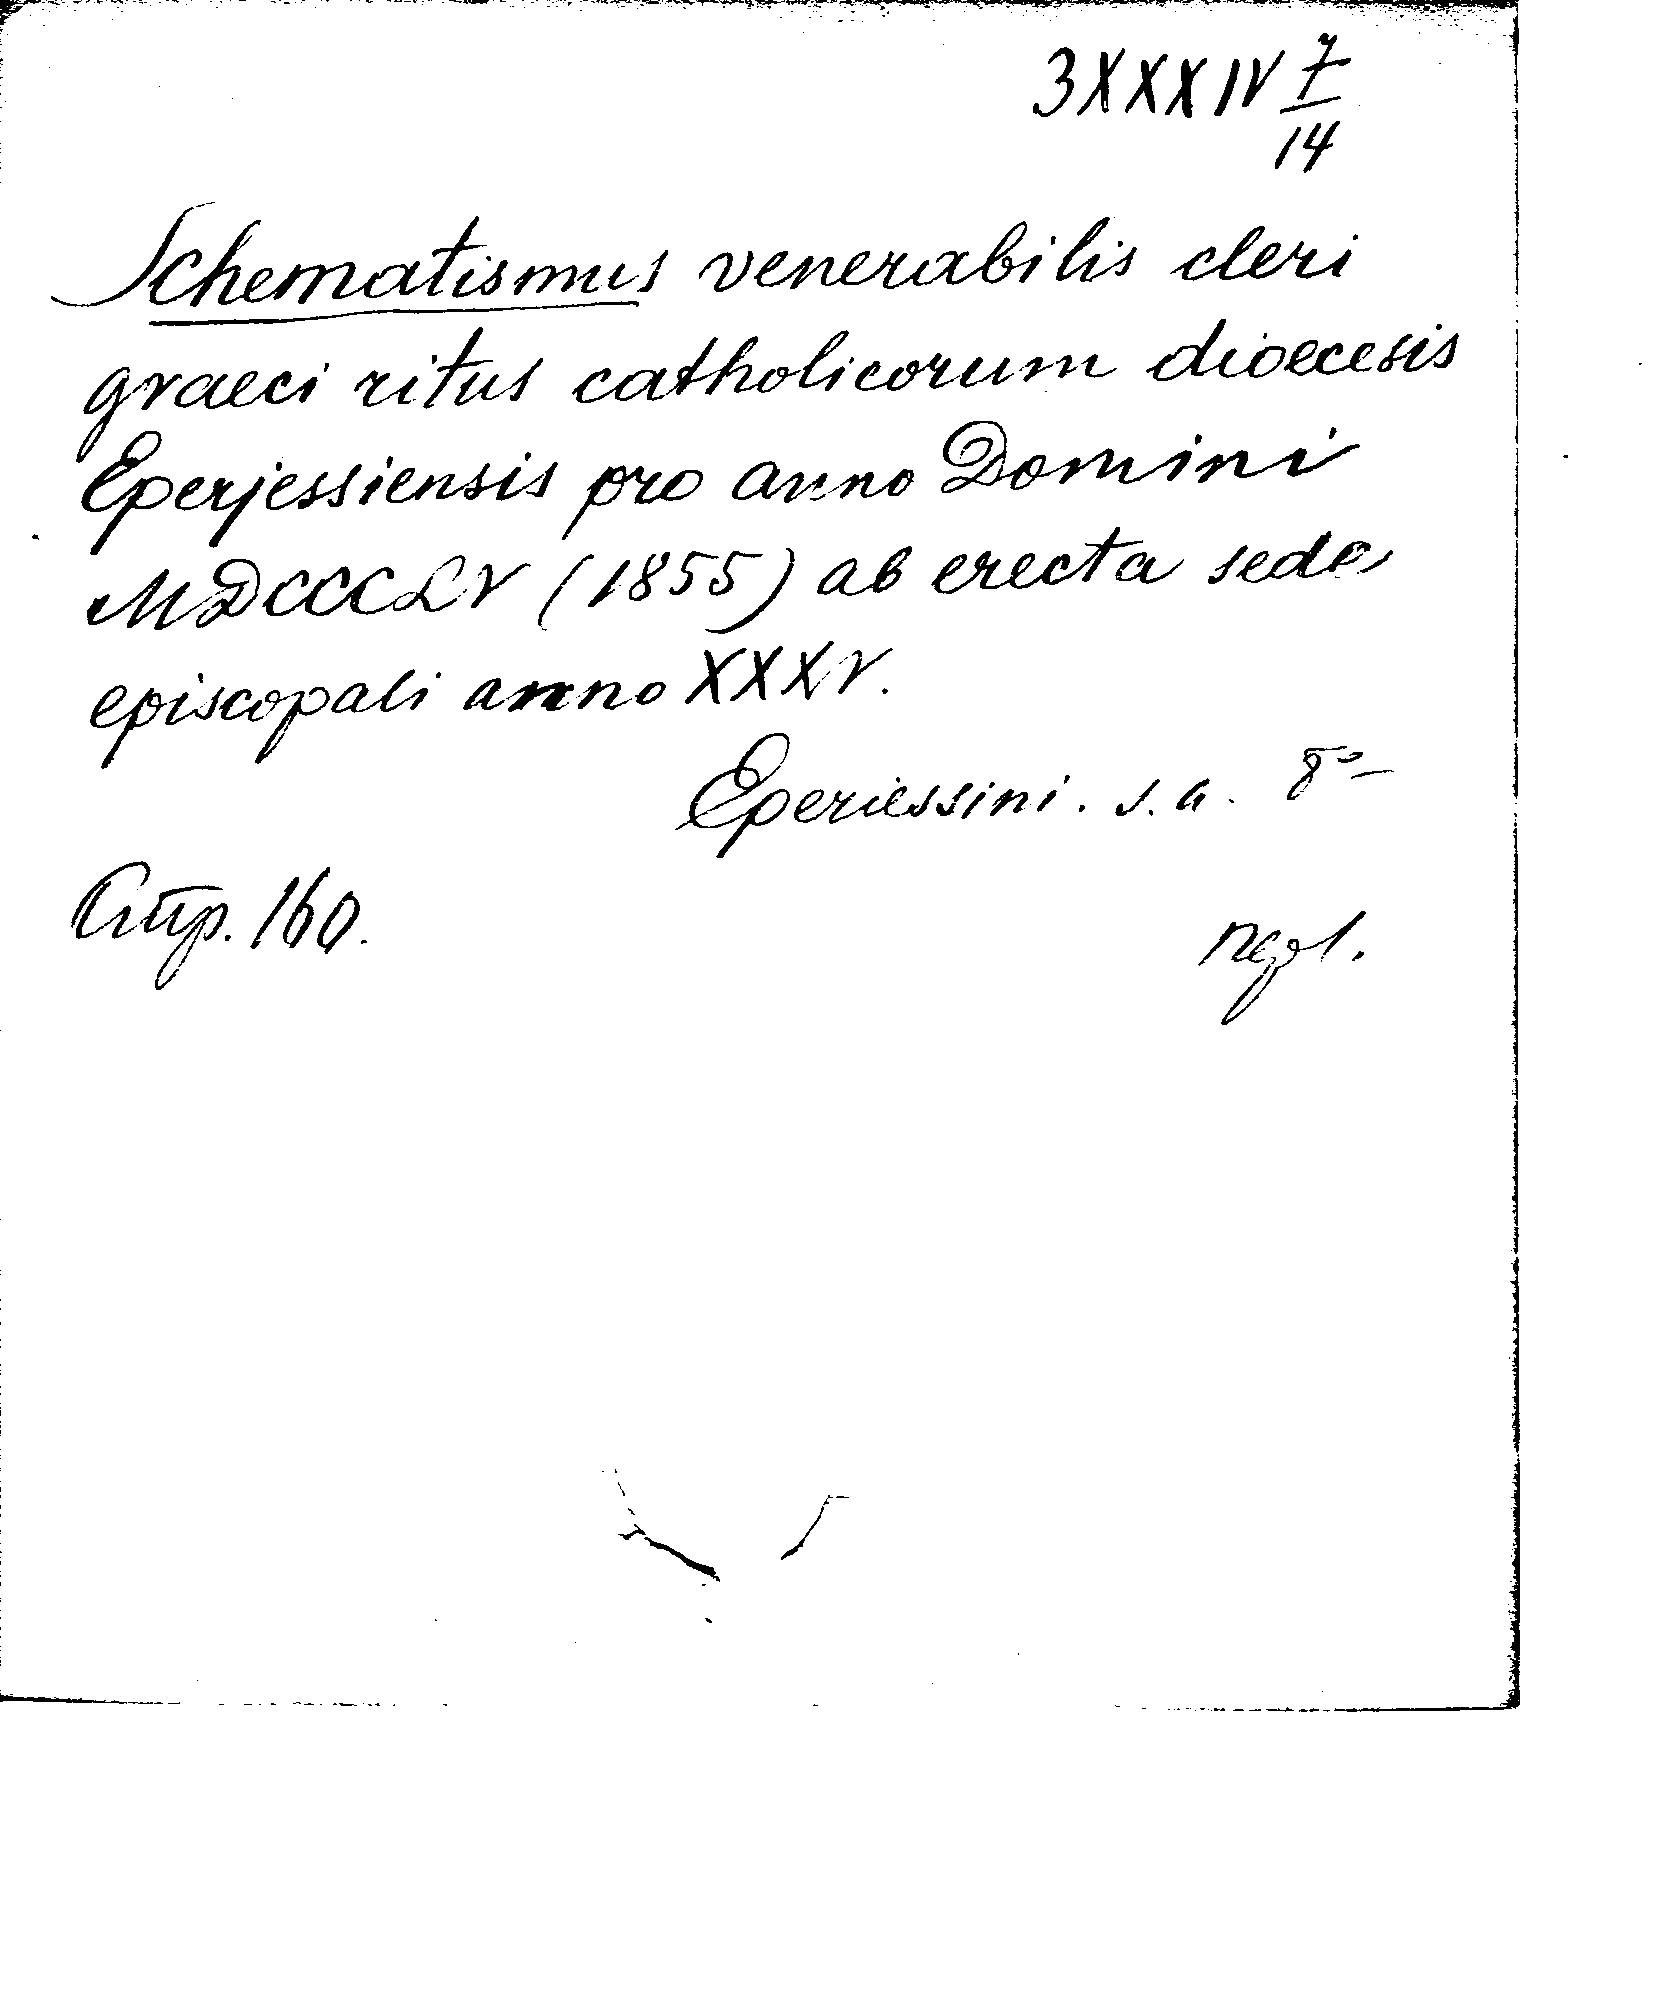 3 XXXIV 7/14
Schematismus venerabilis cleri
graeci ritus catholicorum dioecesis
Eperjessiensis pro anno Domini
MDCCCLV (1855) ab erecta sede
episcopali anno XXXV.
Eperiessini. s.a. 8°
Стр. 160.